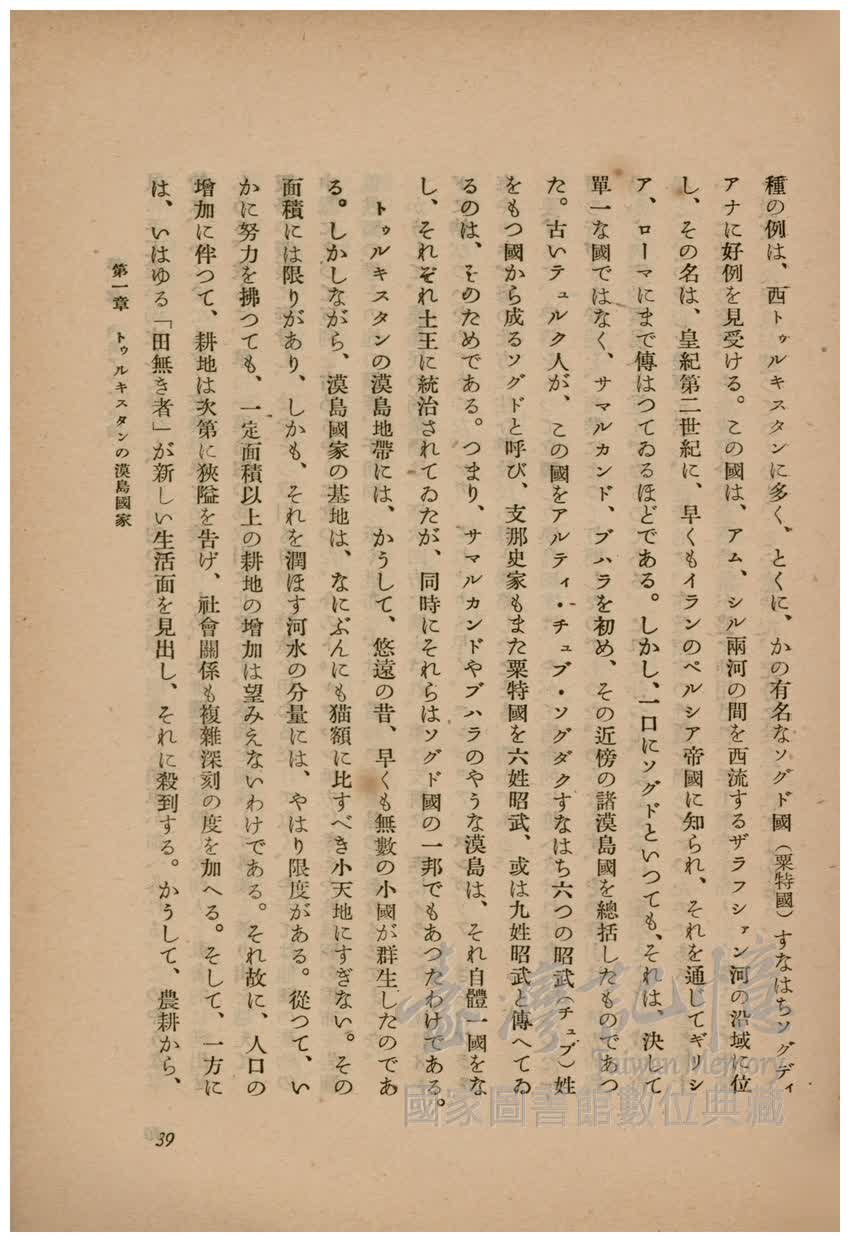 種の例は、西トゥルキスタンに多く、とくに、かの有名なソグド國（粟特國）すなはちソグディ
アナに好例を見受ける。この國は、アム、シル兩河の間を西流するザラフシァン河の沿域に位
し、その名は、皇紀第二世紀に、早くもイランのペルシア帝國に知られ、それを通じてギリシ
ア、ローマにまで傳はつてゐるほどである。しかし、一口にソグドといつても、それは、決して
單一な國ではなく、サマルカンド、ブハラを初め、その近傍の諸漠島國を總括したものであつ
た。古いテュルク人が、この國をアルティ・チュブ・ソグダクすなはち六つの昭武（チュブ）姓
をもつ國から成るソグドと呼び、支那史家もまた粟特國を六姓昭武、或は九姓昭武と傳へてゐ
るのは、そのためである。つまり、サマルカンドやブハラのやうな漠島は、それ自體一國をな
し、それぞれ土王に統治されてゐたが、同時にそれらはソグド國の一邦でもあつたわけである。
トゥルキスタンの漠島地帶には、かうして、悠遠の昔、早くも無數の小國が群生したのであ
る。しかしながら、漠島國家の基地は、なにぶんにも猫額に比すべき小天地にすぎない。その
面積には限りがあり、しかも、それを潤ほす河水の分量には、やはり限度がある。從つて、い
かに努力を拂つても、一定面積以上の耕地の增加は望みえないわけである。それ故に、人口の
增加に伴つて、耕地は次第に狹隘を告げ、社會關係も複雜深刻の度を加へる。そして、一方に
は、いはゆる「田無き者」が新しい生活面を見出し、それに殺到する。かうして、農耕から、
第一章　トゥルキスタンの漠島國家
39
臺灣記憶
Taiwan Memory
國家圖書館數位典藏